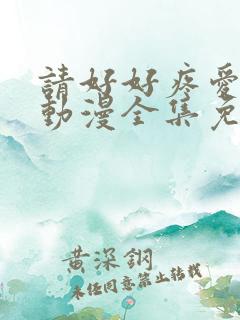 請好好疼愛
動漫全集免
黄深鋼
未经同意禁止转载